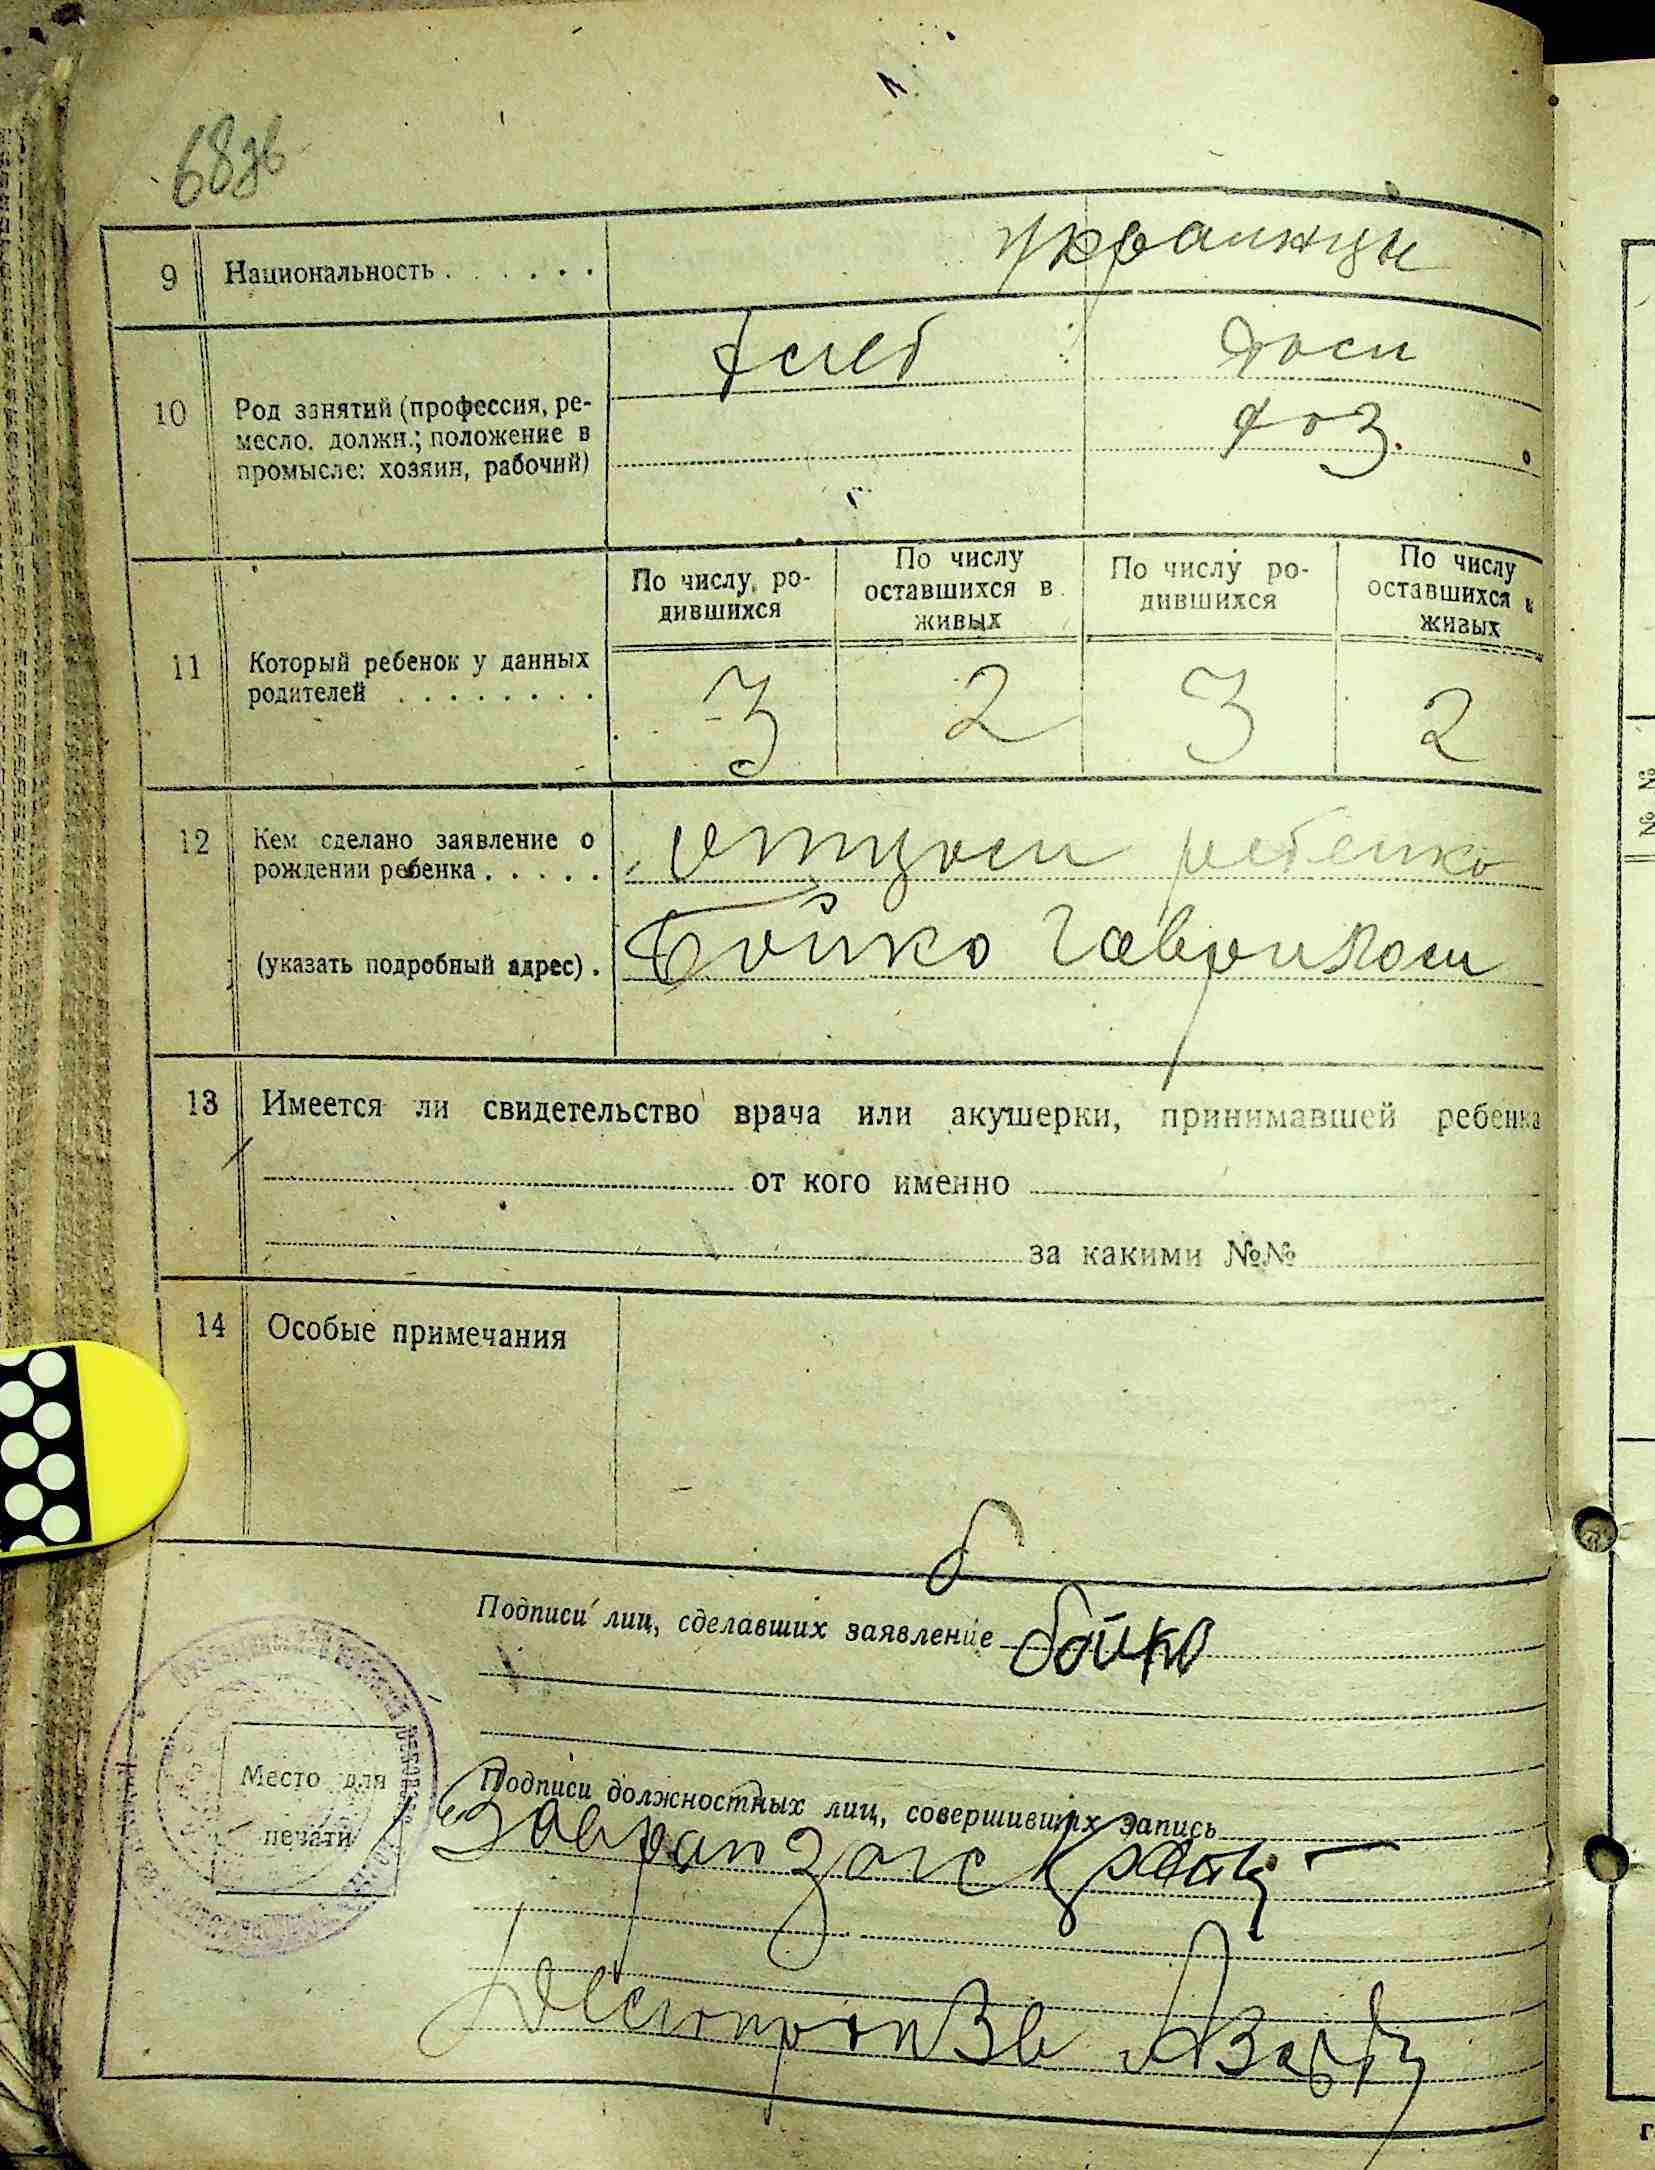 68зв
9 Национальность . . . . . . украинцы
хлеб дом
хоз.
10 Род занятий (профессия, ре-
месло, должн.; положение в
промысле: хозяин, рабочий)
По числу ро-
дившихся
По числу
оставшихся в
живых
По числу ро-
дившихся
По числу
оставшихся в
живых
11 Который ребенок у данных
родителей . . . . . . . .
3 2 3 2
12 Кем сделано заявление о
рождении ребенка . . . . .
отцом ребенка
(указать подробный адрес) .
Бойко Гаврилом
13 Имеется ли свидетельство врача или акушерки, принимавшей ребенка
от кого именно
за какими №№
14 Особые примечания
б
Подписи лиц, сделавших заявление бойко
Место для
печати
Подписи должностных лиц, совершивших запись